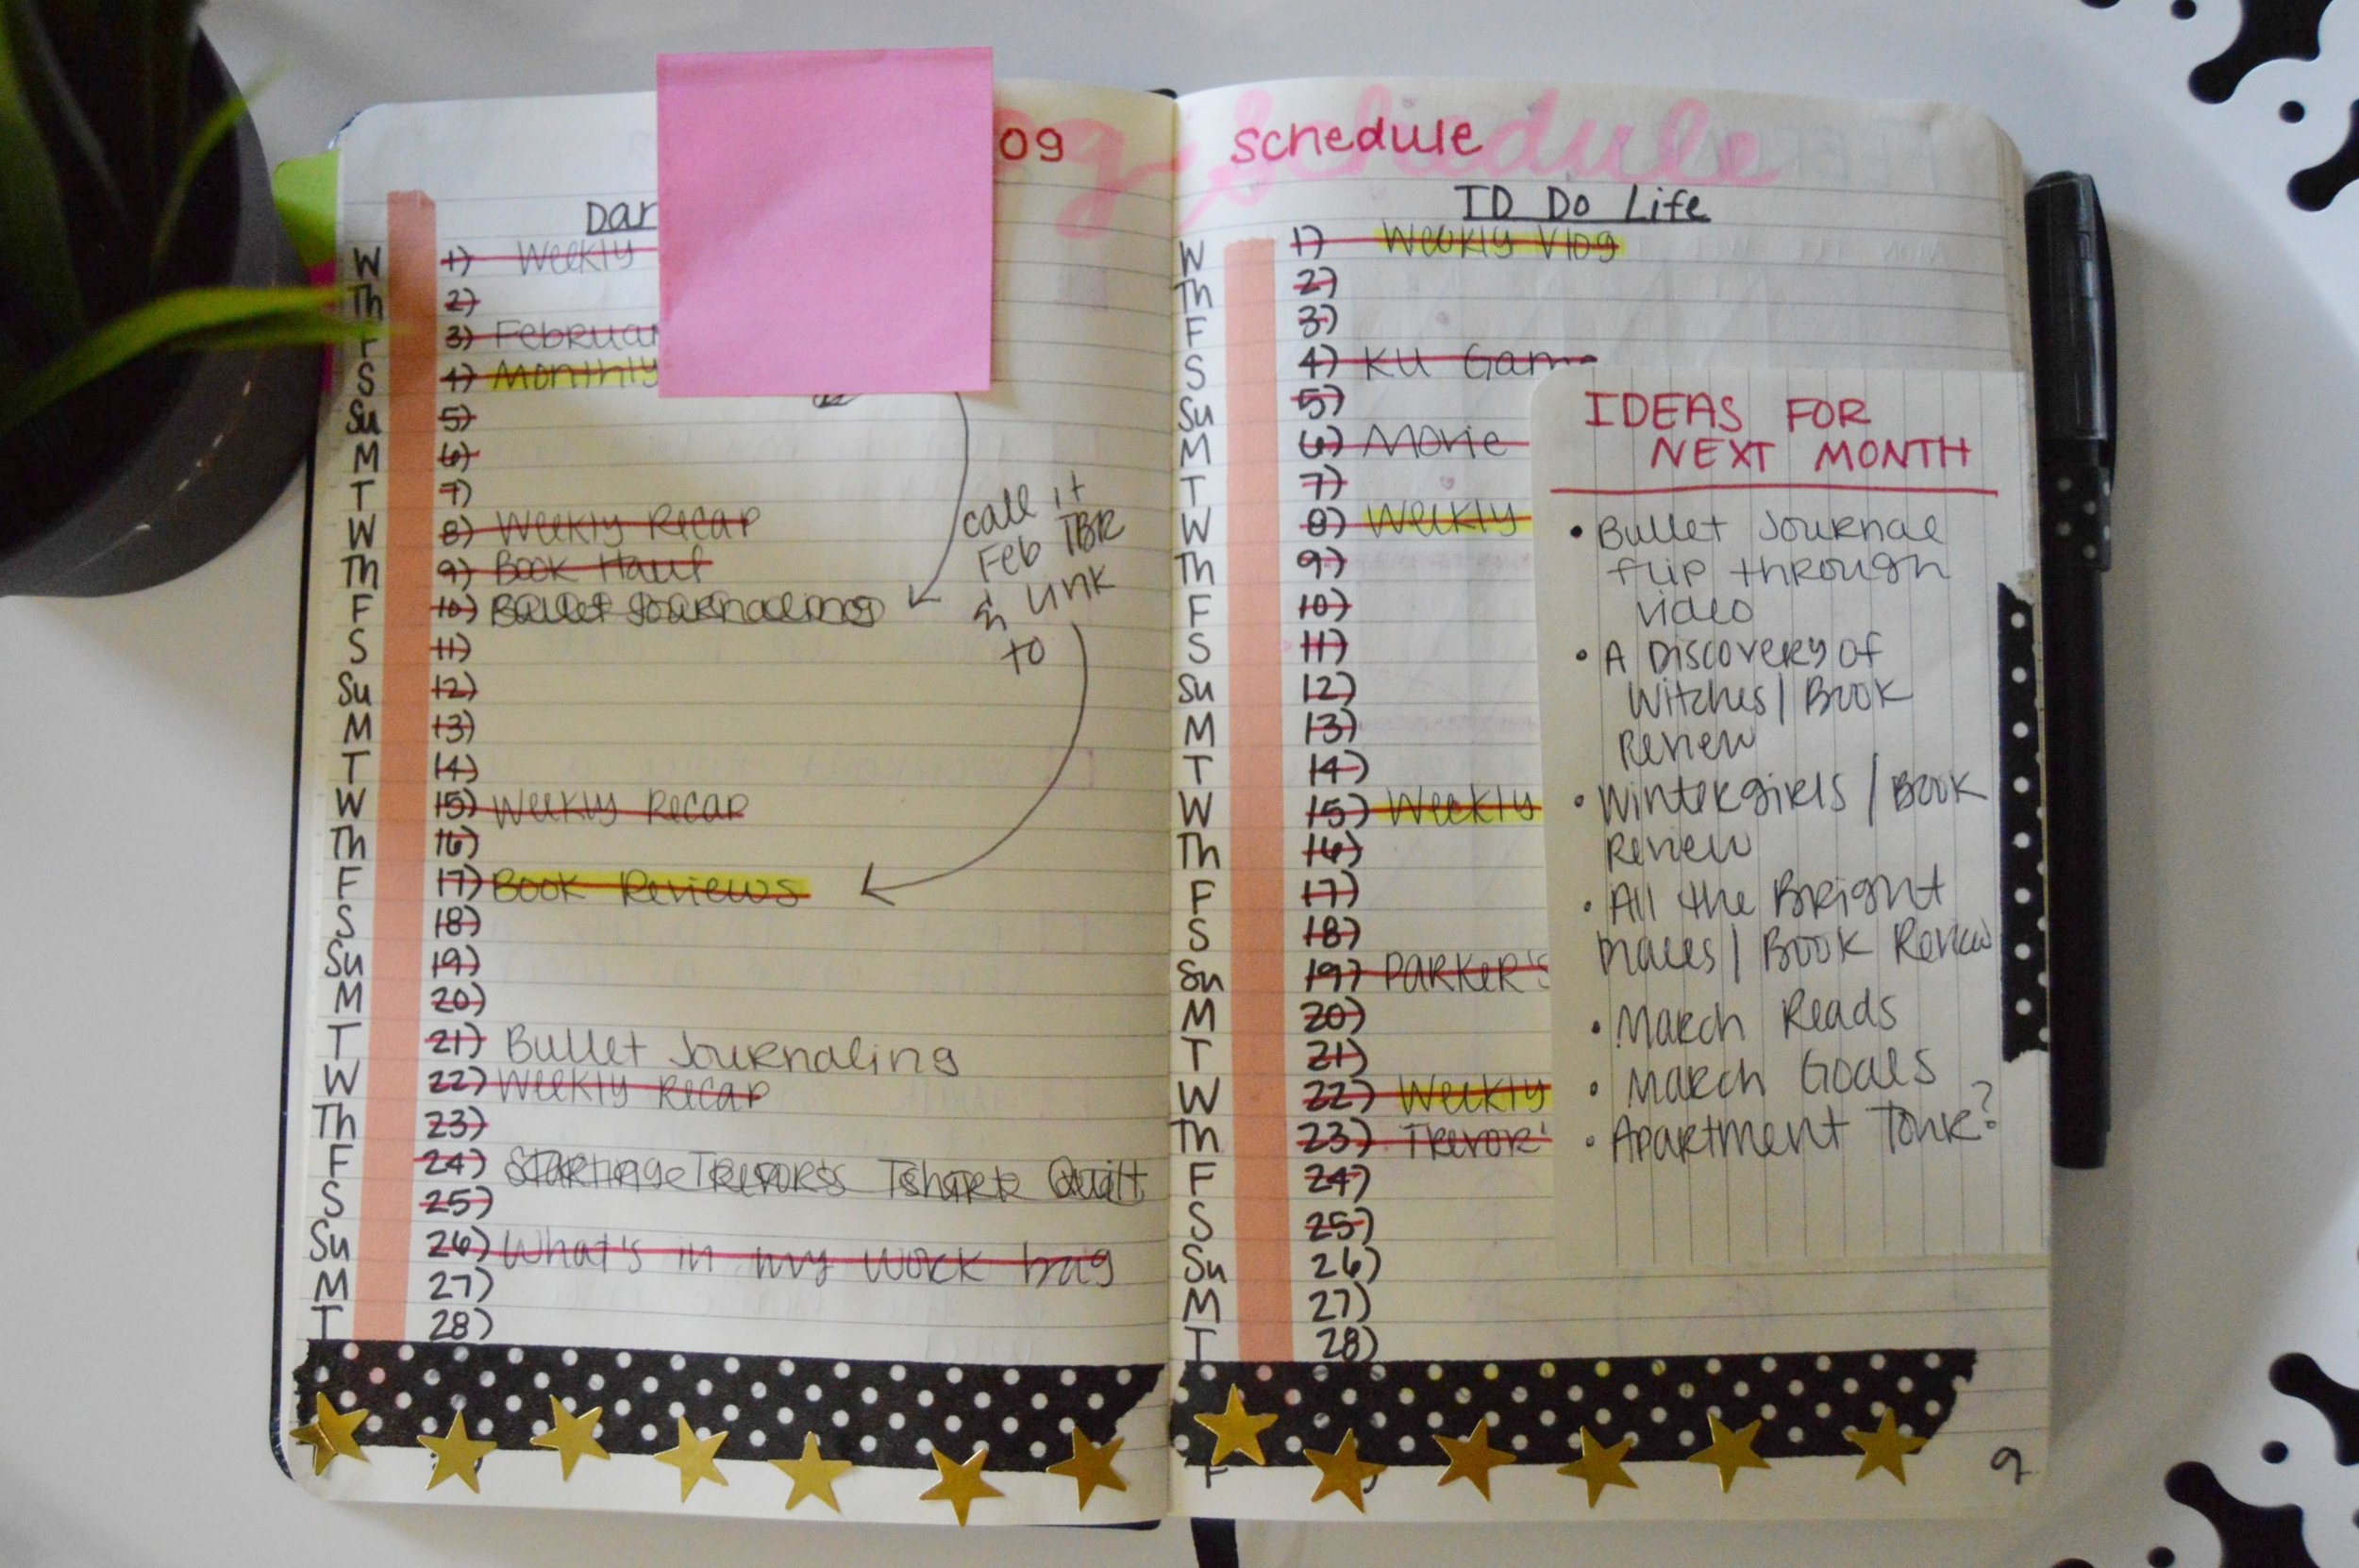 og schedule
Schedule
Dar
W 1) Weekly
Th 2)
F 3) Februar
S 4) Monthly
Su 5)
M 6)
T 7)
W 8) Weekly Recap
Th 9) Book Haul
F 10) Bullet Journaling
S 11)
Su 12)
M 13)
T 14)
W 15) Weekly Recap
Th 16)
F 17) Book Reviews
S 18)
Su 19)
M 20)
T 21) Bullet Journaling
W 22) Weekly Recap
Th 23)
F 24) Starting Trevor's Tshirt Quilt
S 25)
Su 26) What's in my work bag
M 27)
T 28)
call it
Feb TBR
& link
to
ID Do Life
W 1) Weekly Vlog
Th 2)
F 3)
S 4) KU Game
Su 5)
M 6) Movie
T 7)
W 8) Weekly
Th 9)
F 10)
S 11)
Su 12)
M 13)
T 14)
W 15) Weekly
Th 16)
F 17)
S 18)
Su 19) Parker's
M 20)
T 21)
W 22) Weekly
Th 23) Trevor'
F 24)
S 25)
Su 26)
M 27)
T 28)
F
IDEAS FOR
NEXT MONTH
• Bullet Journal
flip through
video
• A Discovery of
Witches / Book
Review
• Wintergirls / Book
Review
• All the Bright
Places / Book Review
• March Reads
• March Goals
• Apartment Tour?
9